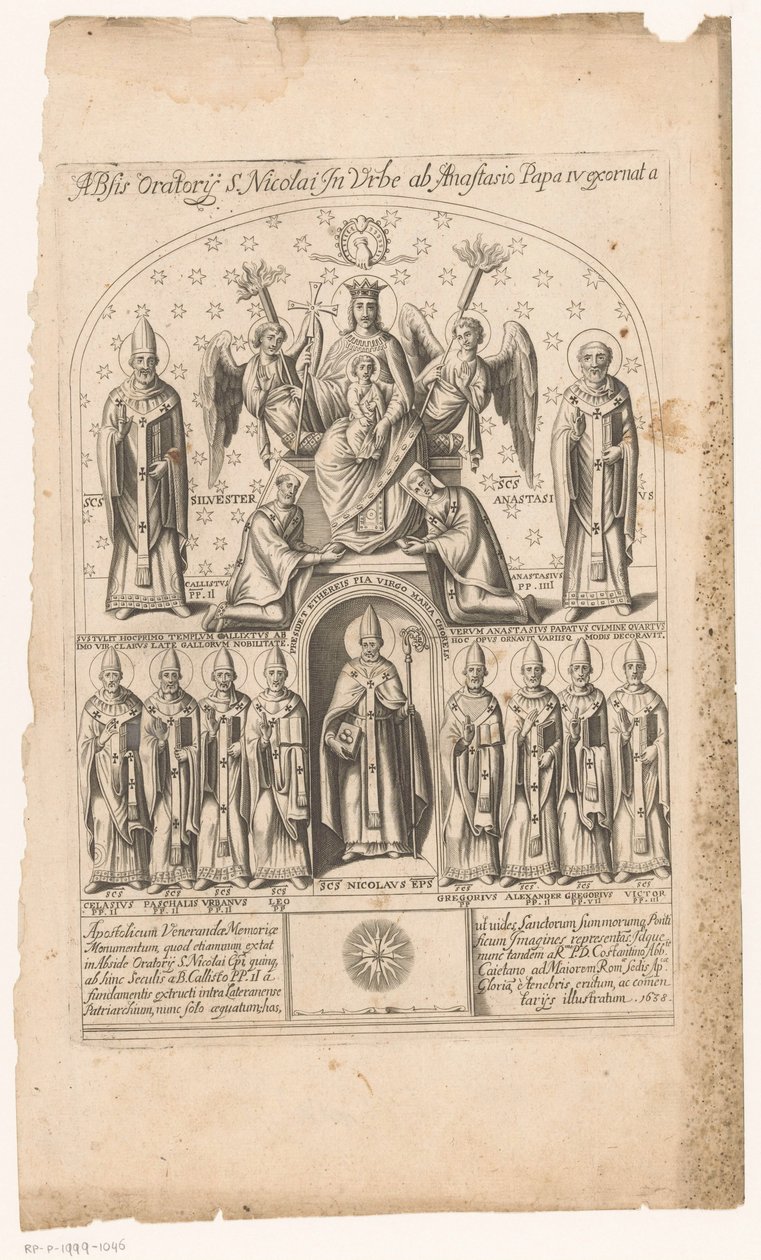 ABsis Oratorij S. Nicolai In Vrbe ab Anastasio Papa IV exornata
SCS
SILVESTER
SCS
ANASTASI
VS
CALLISTVS
PP. II
ANASTASIVS
PP. IIII
PRESIDET ETHEREIS PIA VIRGO MARIA CHOREIS
SVSTVLIT HOC PRIMO TEMPLVM CALLIXTVS AB
IMO VIR CLARVS LATE GALLORVM NOBILITATE.
VERVM ANASTASIVS PAPATVS CVLMINE QVARTVS
HOC OPVS ORNAVIT VARIISQ MODIS DECORAVIT.
SCS
CELASIVS
PP. II
SCS
PASCHALIS
PP. II
SCS
VRBANVS
PP. II
SCS
LEO
PP
SCS NICOLAVS EPS
SCS
GREGORIVS
PP
SCS
ALEXANDER
PP. II
SCS
GREGORIVS
PP. VII
SCS
VICTOR
PP. III
Apostolicum Venerandæ Memoriæ
Monumentum, quod etiamnum extat
in Abside Oratorij S. Nicolai Epi, quinq,
ab hinc Seculis a B. Callisto PP. II a
fundamentis extructi intra Lateranense
Patriarchium, nunc solo æquatum; has,
ut uides Sanctorum summorumq Ponti
ficum Imagines representas. Idque
nunc tandem a Rmo P.D. Costantino Abb.
Caietano ad Maiorem Rom Sedis Ap.
Gloriã è tenebris erutum, ac comen
tarijs illustratum. 1638.
RP-P-1999-1046